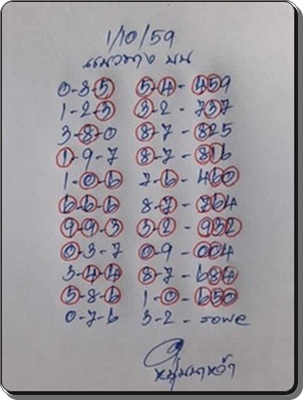 1/10/59
แนวทาง บน
0-3-5 54-459
1-2-3 32-737
3-8-0 87-825
1-9-7 87-816
1-0-6 76-460
6-6-6 87-764
9-9-3 32-932
0-3-7 09-004
3-4-4 87-684
5-8-6 1-0-650
0-7-6 3-2-